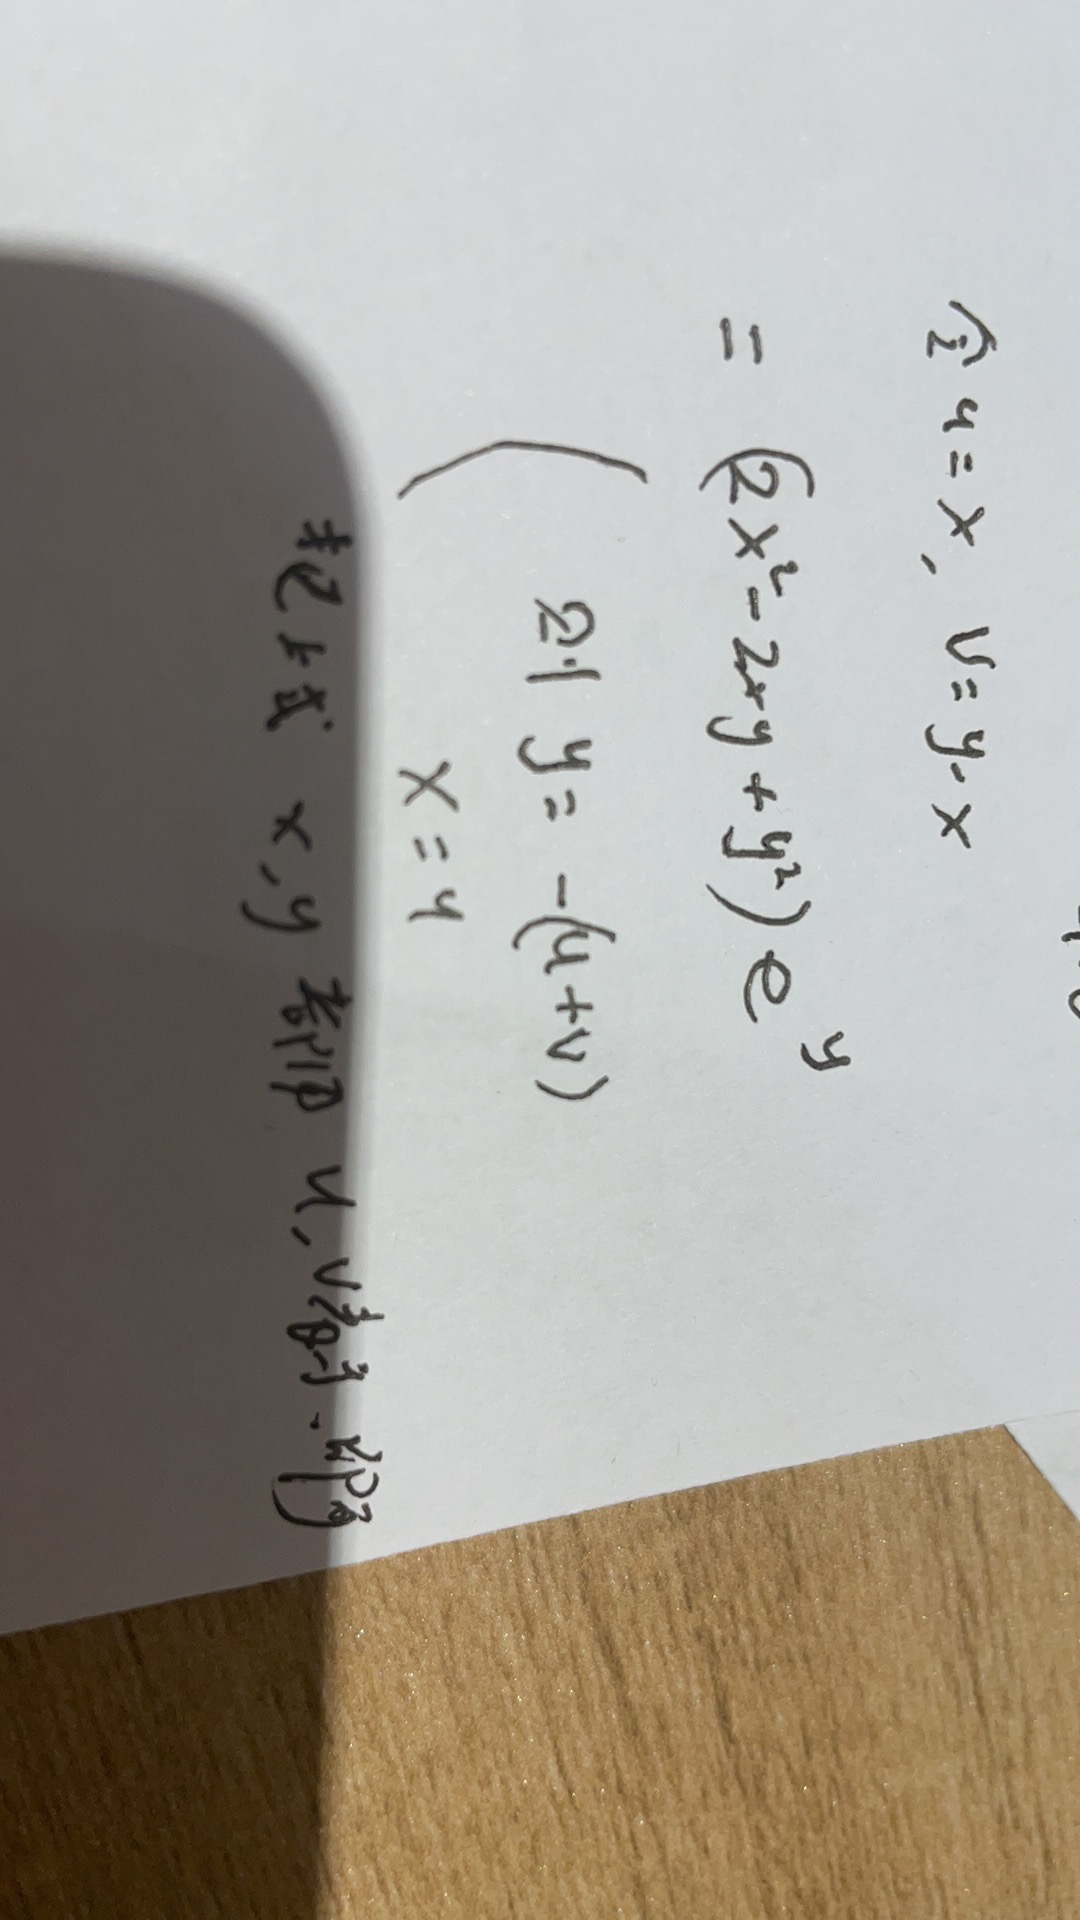 令 u = x, v = y - x
= (2x² - 2xy + y²) e^y
则 y = -(u+v)
x = u
把上式 x, y 都用 u, v 替. 即可